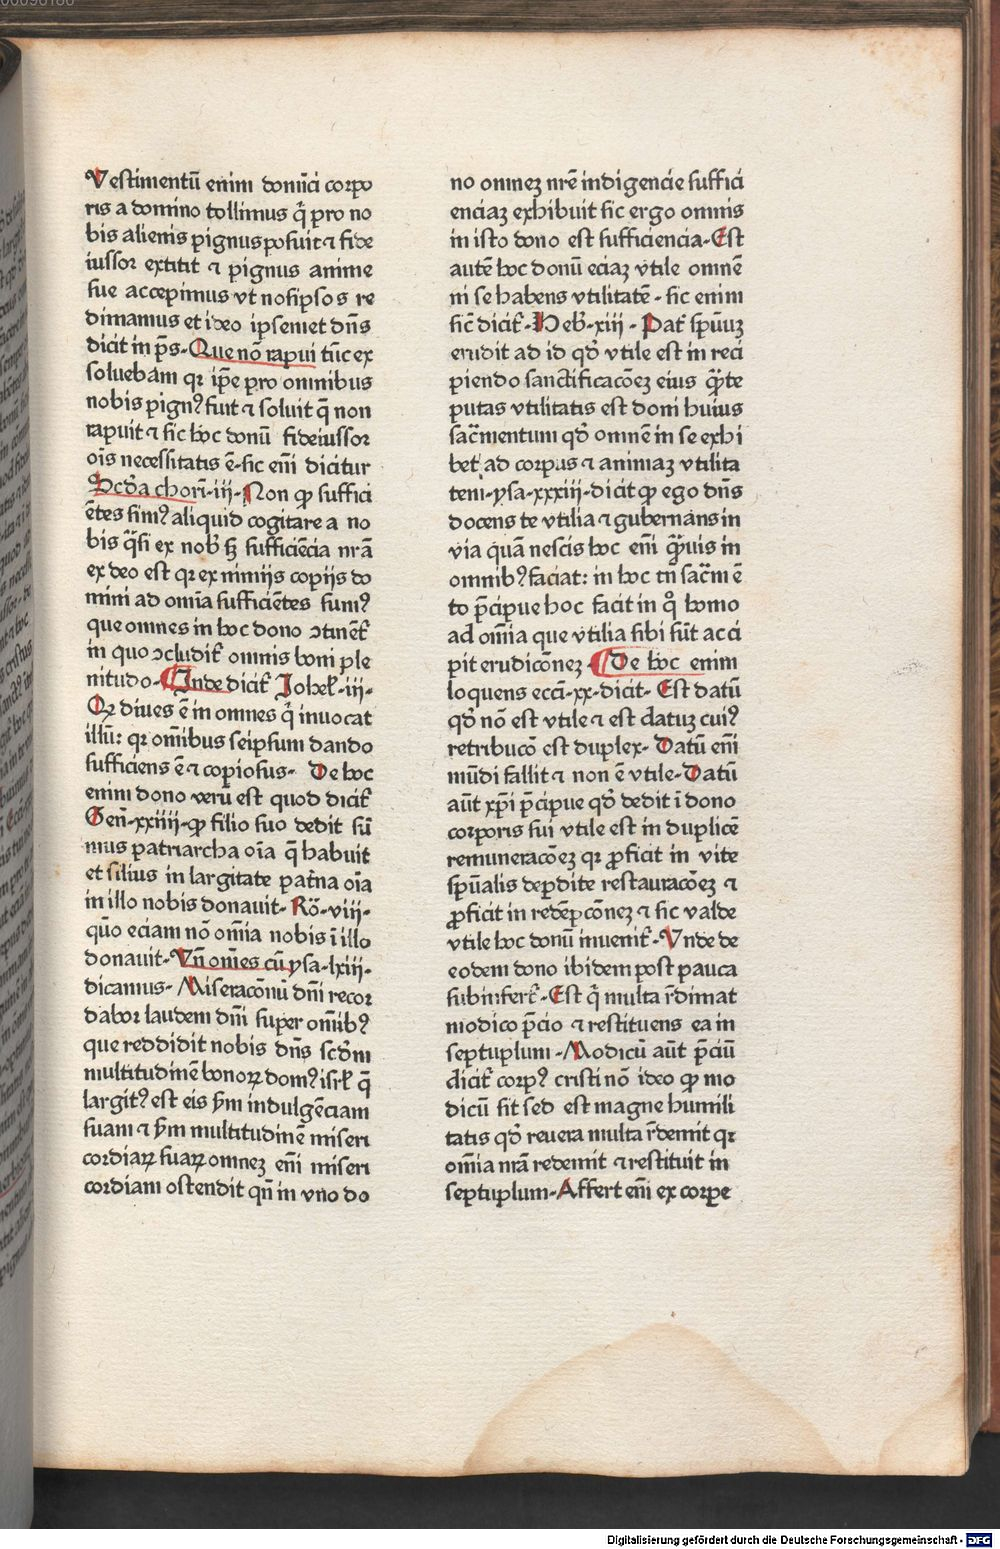 Vestimentū enim dominici corpo
ris a domino tollimus q̄ pro no
bis alienis pignus posuit ⁊ fide
iussor extitit ⁊ pignus anime
sue accepimus vt nosipsos re
dimamus et ideo ipsemet dn̄s
dicit in p̄s. Que nō rapui tūc ex
soluebam qꝛ ip̄e pro omnibus
nobis pignꝰ fuit ⁊ soluit q̄ non
rapuit ⁊ sic hoc donū fideiussor
oīs necessitatis ē. sic em̄ dicitur
Scd̄a chorī. iij. Non ꝙ suffici
ētes simꝰ aliquid cogitare a no
bis q̄si ex nob̄ sꝫ sufficiēcia nr̄a
ex deo est qꝛ ex nimijs copijs do
mini ad om̄ia sufficiētes sumꝰ
que omnes in hoc dono ↄtinet̄
in quo ↄcludit̄ omnis boni ple
nitudo. Inde dicit̄ Johel̄. iij.
Qꝛ diues ē in omnes q̄ inuocat
illū: qꝛ om̄ibus seipsum dando
sufficiens ē ⁊ copiosus. De hoc
enim dono verū est quod dicit̄
Gen̄. xxiiij. ꝙ filio suo dedit sū
mus patriarcha oīa q̄ habuit
et filius in largitate pat̄na oīa
in illo nobis donauit. Rō. viij.
quō eciam nō om̄ia nobis ī illo
donauit. Vn̄ om̄es cū ysa. lxiij.
dicamus. Miseracōnū dn̄i recor
dabor laudem dn̄i super om̄ibꝰ
que reddidit nobis dn̄s scd̄m
multitudinē bonoꝝ domꝰ isrl̄ q̄
largitꝰ est eis s̄m indulgēciam
suam ⁊ s̄m multitudinē miseri
cordiaꝝ suaꝝ omneꝫ em̄ miseri
cordiam ostendit qn̄ in vno do
no omneꝫ nr̄e indigencie suffici
enciaꝫ exhibuit sic ergo omnis
in isto dono est sufficiencia. Est
autē hoc donū eciaꝫ vtile omnē
in se habens vtilitatē. sic enim
sic̄ dicit̄. Heb̄. xiij. Pat̄ spūuꝫ
erudit ad id qd̄ vtile est in reci
piendo sanctificacōeꝫ eius q̄ʒte
putas vtilitatis est doni huius
sac̄mentum qd̄ omnē in se exhi
bet ad corpus ⁊ animaꝫ vtilita
tem. ysa. xxxiij. dicit ꝙ ego dn̄s
docens te vtilia ⁊ gubernans in
via quā nescis hoc em̄ q̄ʒuis in
omnibꝰ faciat: in hoc tn̄ sac̄mē
to p̄cipue hoc facit in qͦ homo
ad om̄ia que vtilia sibi sūt acci
pit erudicōneꝫ. De hoc enim
loquens ecci̅. xx. dicit. Est datū
qd̄ nō est vtile ⁊ est datuꝫ cuiꝰ
retribucō est duplex. Datū em̄
mūdi fallit ⁊ non ē vtile. Datū
aūt xp̄i p̄cipue qd̄ dedit ī dono
corporis sui vtile est in duplicē
remuneracōeꝫ qꝛ ꝓficit in vite
spūalis deperdite restauracōeꝫ ⁊
ꝓficit in redēpcōneꝫ ⁊ sic valde
vtile hoc donū inuenit̄. Vnde de
eodem dono ibidem post pauca
subinfert̄. Est q̄ multa r̄dimat
modico p̄cio ⁊ restituens ea in
septuplum. Modicū aūt p̄ciū
dicit̄ corpꝰ cristi nō ideo ꝙ mo
dicū sit sed est magne humili
tatis qd̄ reuera multa r̄demit qꝛ
om̄ia nr̄a redemit ⁊ restituit in
septuplum. Affert em̄ ex corpe
Digitalisierung gefördert durch die Deutsche Forschungsgemeinschaft - DFG